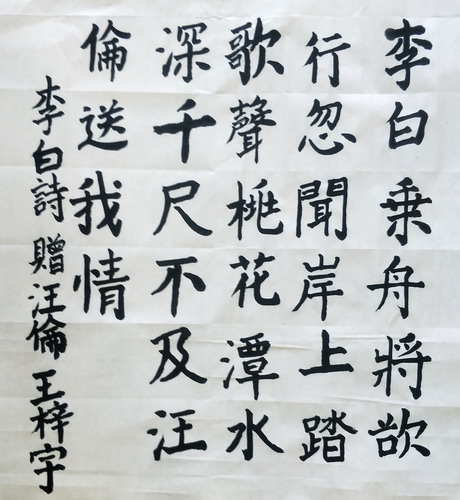 李白乘舟將欲
行忽聞岸上踏
歌聲桃花潭水
深千尺不及汪
倫送我情
李白詩贈汪倫王梓宇